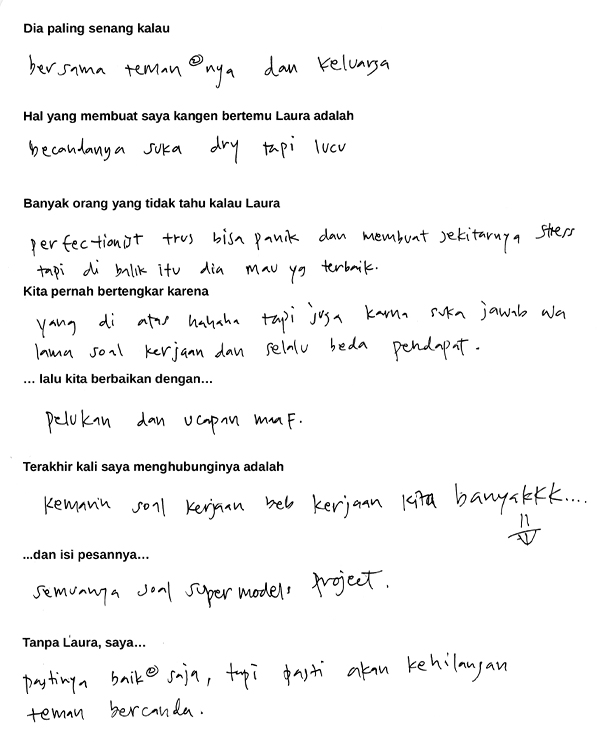 Dia paling senang kalau
bersama teman②nya dan keluarga
Hal yang membuat saya kangen bertemu Laura adalah
becandanya suka dry tapi lucu
Banyak orang yang tidak tahu kalau Laura
perfectionist trus bisa panik dan membuat sekitarnya stress
tapi di balik itu dia mau yg terbaik.
Kita pernah bertengkar karena
yang di atas hahaha tapi juga karna suka jawab wa
lama soal kerjaan dan selalu beda pendapat.
... lalu kita berbaikan dengan...
pelukan dan ucapan maaf.
Terakhir kali saya menghubunginya adalah
kemarin soal kerjaan beb kerjaan kita banyakkk....
...dan isi pesannya...
semuanya soal supermodels project.
Tanpa Laura, saya...
pastinya baik② saja, tapi pasti akan kehilangan
teman bercanda.